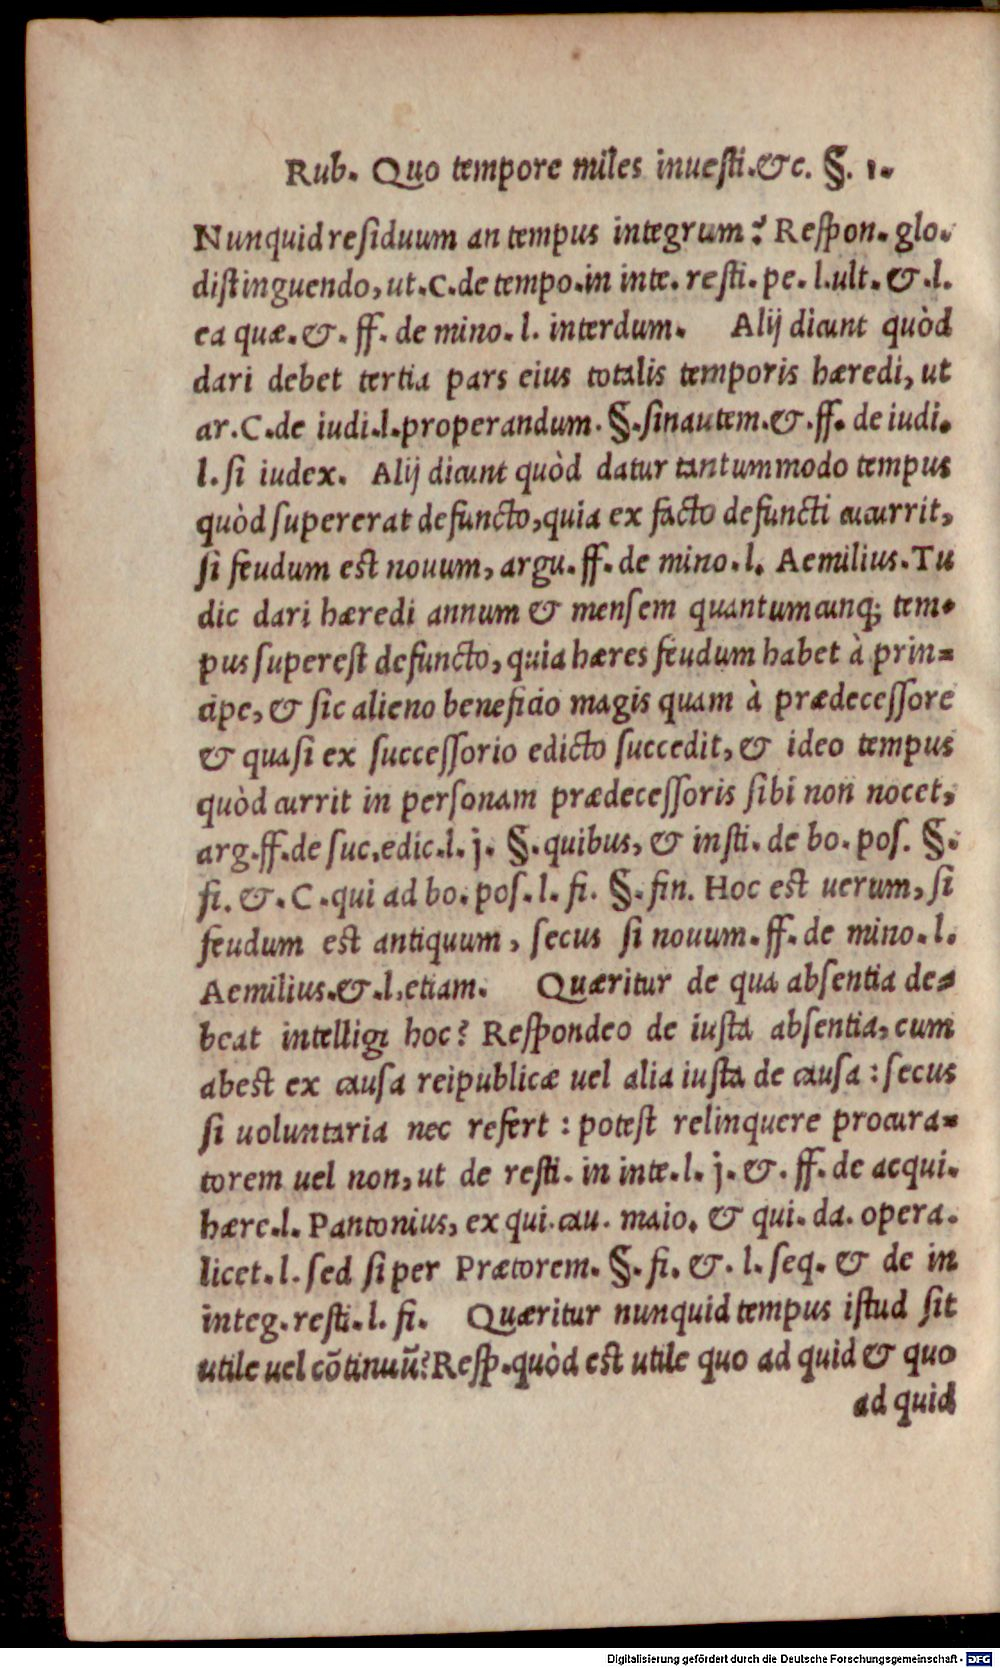 Rub. Quo tempore miles inuesti.&c. §. 1.
Nunquid residuum an tempus integrum? Respon. glo.
distinguendo, ut. C. de tempo. in inte. resti. pe. l. ult. &. l.
ea quæ. &. ff. de mino. l. interdum. Alij dicunt quòd
dari debet tertia pars eius totalis temporis hæredi, ut
ar. C. de iudi. l. properandum. §. sinautem. &. ff. de iudi.
l. si iudex. Alij dicunt quòd datur tantummodo tempus
quòd supererat defuncto, quia ex facto defuncti cucurrit,
si feudum est nouum, argu. ff. de mino. l. Aemilius. Tu
dic dari hæredi annum & mensem quantumcunq; tem-
pus superest defuncto, quia hæres feudum habet à prin-
cipe, & sic alieno beneficio magis quam à prædecessore
& quasi ex successorio edicto succedit, & ideo tempus
quòd currit in personam prædecessoris sibi non nocet,
arg. ff. de suc. edic. l. j. §. quibus, & insti. de bo. pos. §.
fi. &. C. qui ad bo. pos. l. fi. §. fin. Hoc est uerum, si
feudum est antiquum, secus si nouum. ff. de mino. l.
Aemilius. &. l. etiam. Quæritur de qua absentia de-
beat intelligi hoc? Respondeo de iusta absentia, cum
abest ex causa reipublicæ uel alia iusta de causa: secus
si uoluntaria nec refert: potest relinquere procura-
torem uel non, ut de resti. in inte. l. j. &. ff. de acqui.
hære. l. Pantonius, ex qui. cau. maio. & qui. da. opera.
licet. l. sed si per Prætorem. §. fi. &. l. seq. & de in
integ. resti. l. fi. Quæritur nunquid tempus istud sit
utile uel cõtinuũ? Resp. quòd est utile quo ad quid & quo
ad quid
Digitalisierung gefördert durch die Deutsche Forschungsgemeinschaft - DFG